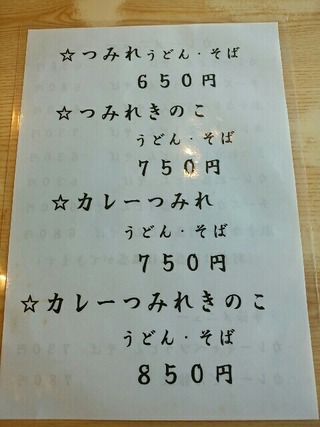 ☆つみれうどん・そば
650円
☆つみれきのこ
うどん・そば
750円
☆カレーつみれ
うどん・そば
750円
☆カレーつみれきのこ
うどん・そば
850円